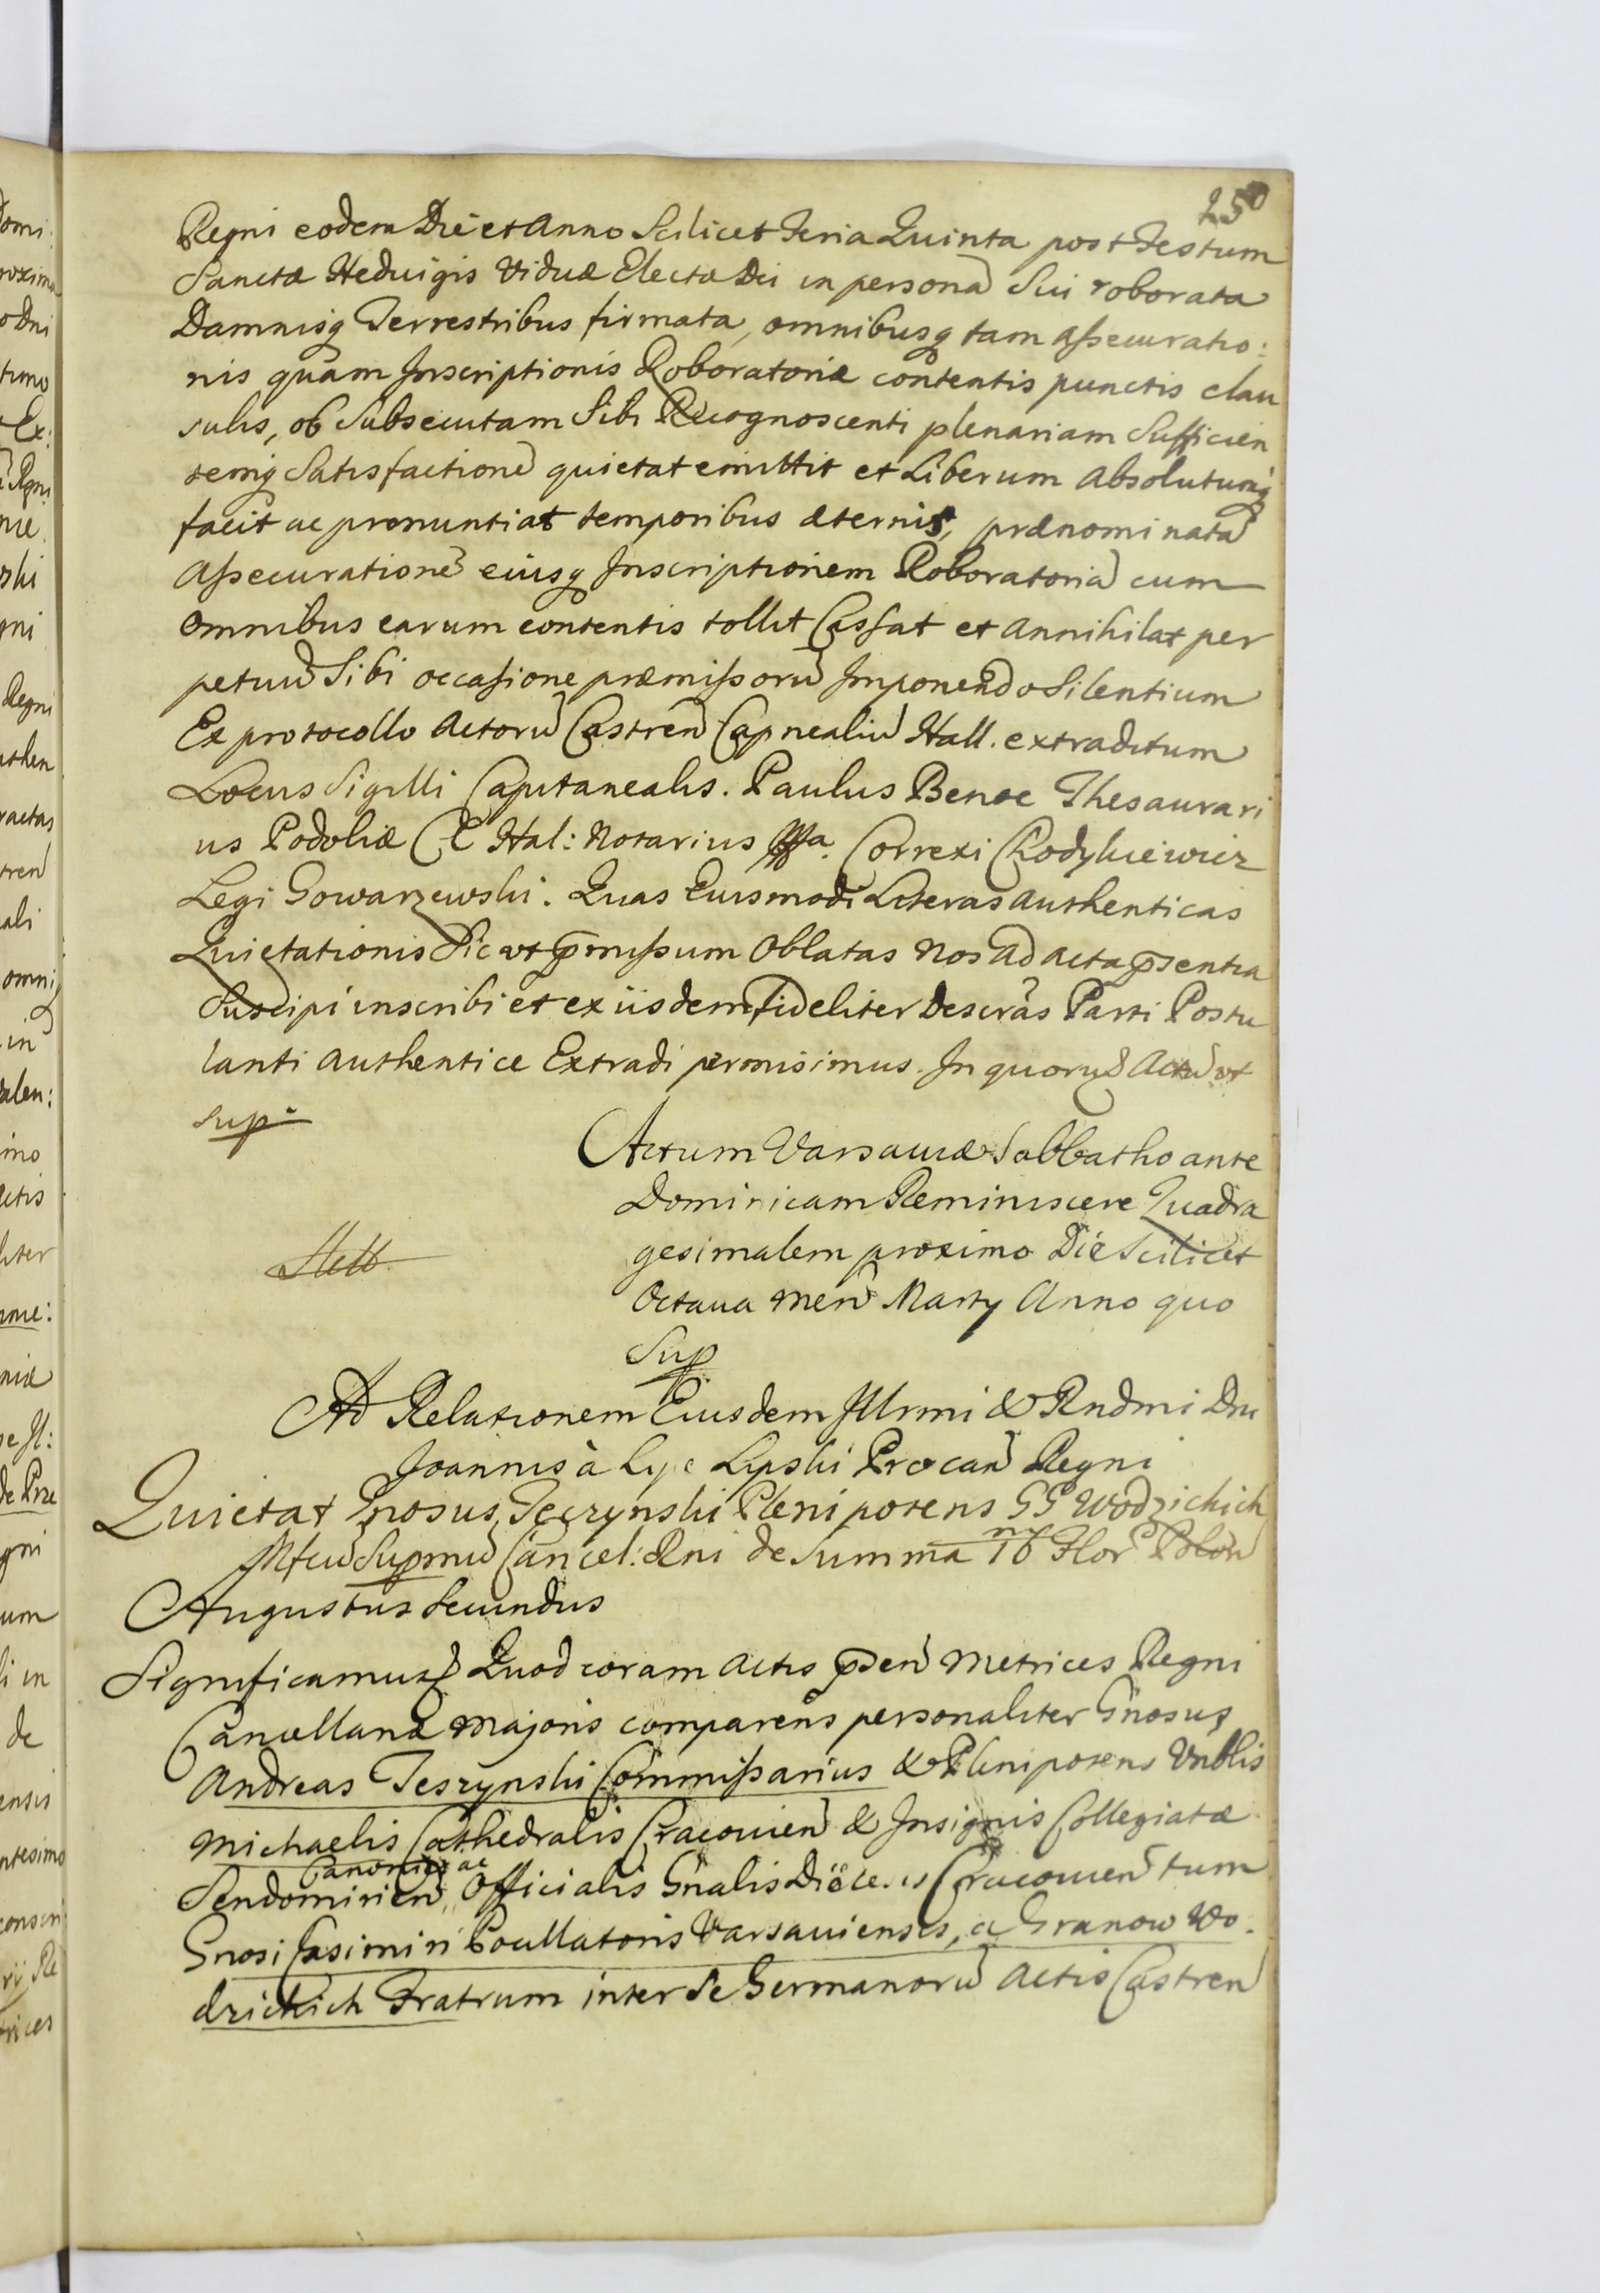 250
Regni eodem Die et Anno Scilicet Feria Quinta post Festum
Sanctæ Heduigis Viduæ Electæ Dei in persona Sui roborata
Damnisq Terrestribus firmata, omnibusq tam Assecuratio:
nis quàm Inscriptionis Roboratoriæ contentis punctis clau
sulis, ob Subsecutam Sibi Recognoscenti plenariam Sufficien
temq Satisfactione quietat emittit et Liberum Absolutumq
facit ac pronuntiat temporibus æternis, prænominata
Assecuratione eiusq Inscriptionem Roboratoria cum
omnibus earum contentis tollit Cassat et Annihilat per
petuu Sibi occasione præmissoru Imponendo Silentium
Ex protocollo Actoru Castren Capnealiu Hall. extraditum
Locus Sigilli Capitanealis. Paulus Benoe Thesaurari
us Podoliæ C Hal: Notarius Correxi Chodykiewicz
Legi Gowarzewski. Quas Eiusmodi Literas Authenticas
Quietationis Sic ut pmissum Oblatas Nos Ad Acta psentia
Suscipi inscribi et ex iisdem fideliter Descrás Parti Postu
lanti Authentice Extradi permisimus. In quoru Actu ut
Sup
Actum Varsaviæ Sabbatho ante
Dominicam Reminiscere Quadra
gesimalem proximo Die Scilicet
Octaua Men Marty Anno quo
Sup
Ad Relationem Eiusdem Illrmi & Rndmi Dni
Joannis à Lipe Lipski Procan Regni
Quietat Gnosus Teczynski Plenipotens GG Wodzickich
Mfcu Supmu Cancel: Rni de Summa 16 m Flor Polon
Augustus Secundus
Significamus Quod coram Actis psen Metrices Regni
Cancellariæ Majoris comparens personaliter Gnosus
Andreas Teszynski Commissarius & Plenipotens Vnblis
Michaelis Cathedralis Cracouien & Insignis Collegiatæ
Canonici ac
Sendomirien Officialis Gnalis Diöcesis Cracouien tum
Gnosi Casimiri Pocillatoris Varsauiensis, a Granow Wo.
dzickich Fratrum inter Se Germanoru Actis Castren